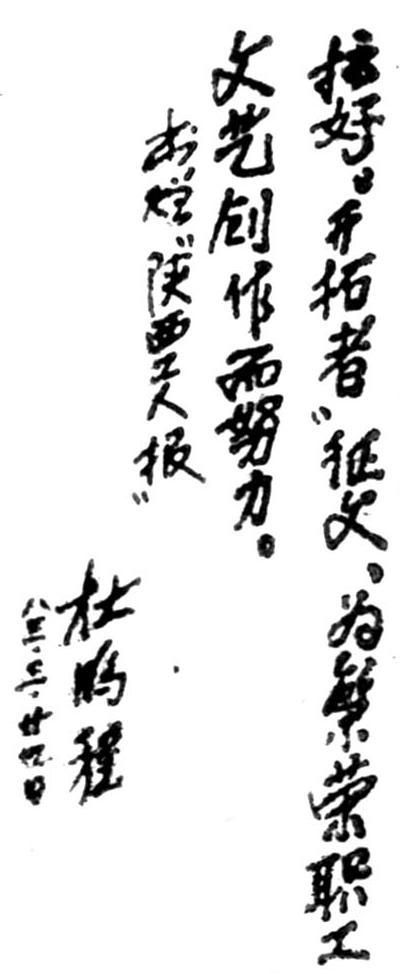 搞好“开拓者”征文、为繁荣职工
文艺创作而努力。
书赠“陕西工人报”
杜鹏程